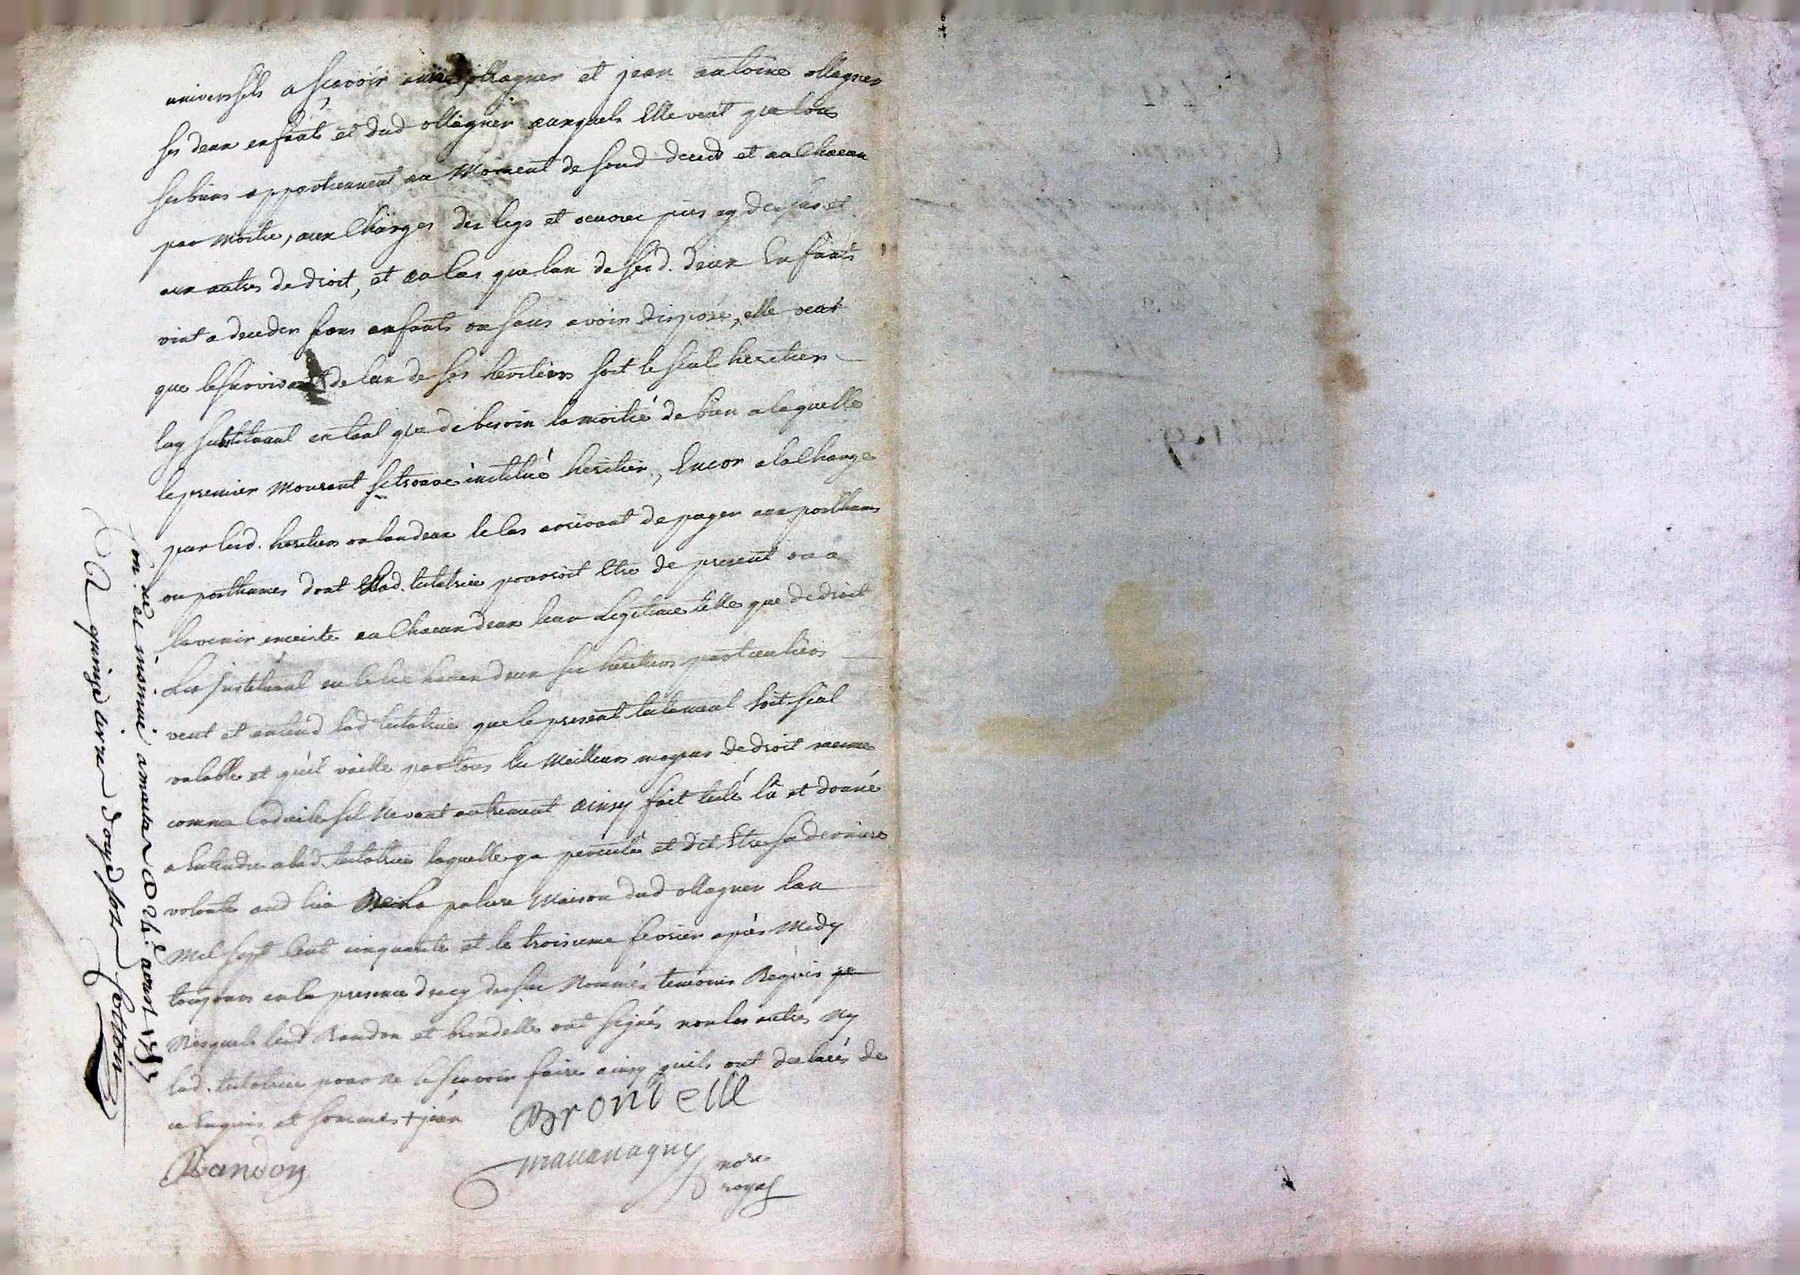 universels a scavoir ollagner et jean antoine ollagner
ses deux enfants et dud ollagner auxquels Elle veut que tous
ses biens appartiennent au Moment de sond deced et au Chacun
par moitie, aux Charges des legs et
aux autres de droit, et au Cas que lun de sesd. deux Enfants
vint a deceder sans enfants ou sans avoir disposé, elle veut
que le survivant de lun de ses heritiers soit le seul heritier
luy substituant en tant que de besoin la moitié de bien a laquelle
le premier Mourant se trouve institué heritier, Encor a la Charge
par lesd. heritiers ou lun deux le Cas arrivant de payer aux posthumes
ou posthumes dont Lad. testatrice pourroit Etre de present ou a
lavenir enceinte au Chacun deux leur Legitime telle que de droit
Les instituant en ce Chacun deux ses heritiers particuliers
veut et entend lad testatrice que le present testament soit seul
valable et qu'il vaille par tous les Meilleurs moyens de droit meme
comme Codicile sil ne vaut autrement ainsy fait testé lû et donné
a Entendre a lad. testatrice laquelle y a percisté et dit Etre sa derniere
volonté aud lieu De La palure Maison dud ollagner lan
Mil sept Cent cinquante et le troisieme fevrier après Midy
toujours en la presence de cy dessus Nommés temoins Requis
desquels lesd Randon et brondelle ont signés non les autres Ny
lad. testatrice pour ne le scavoir faire ainsy quils ont declarés de
ce Enquis et sommes + jean
Brondelle
Randon
mavanagny
nore
royal
con. née et insinué
A quinze livres douze sols